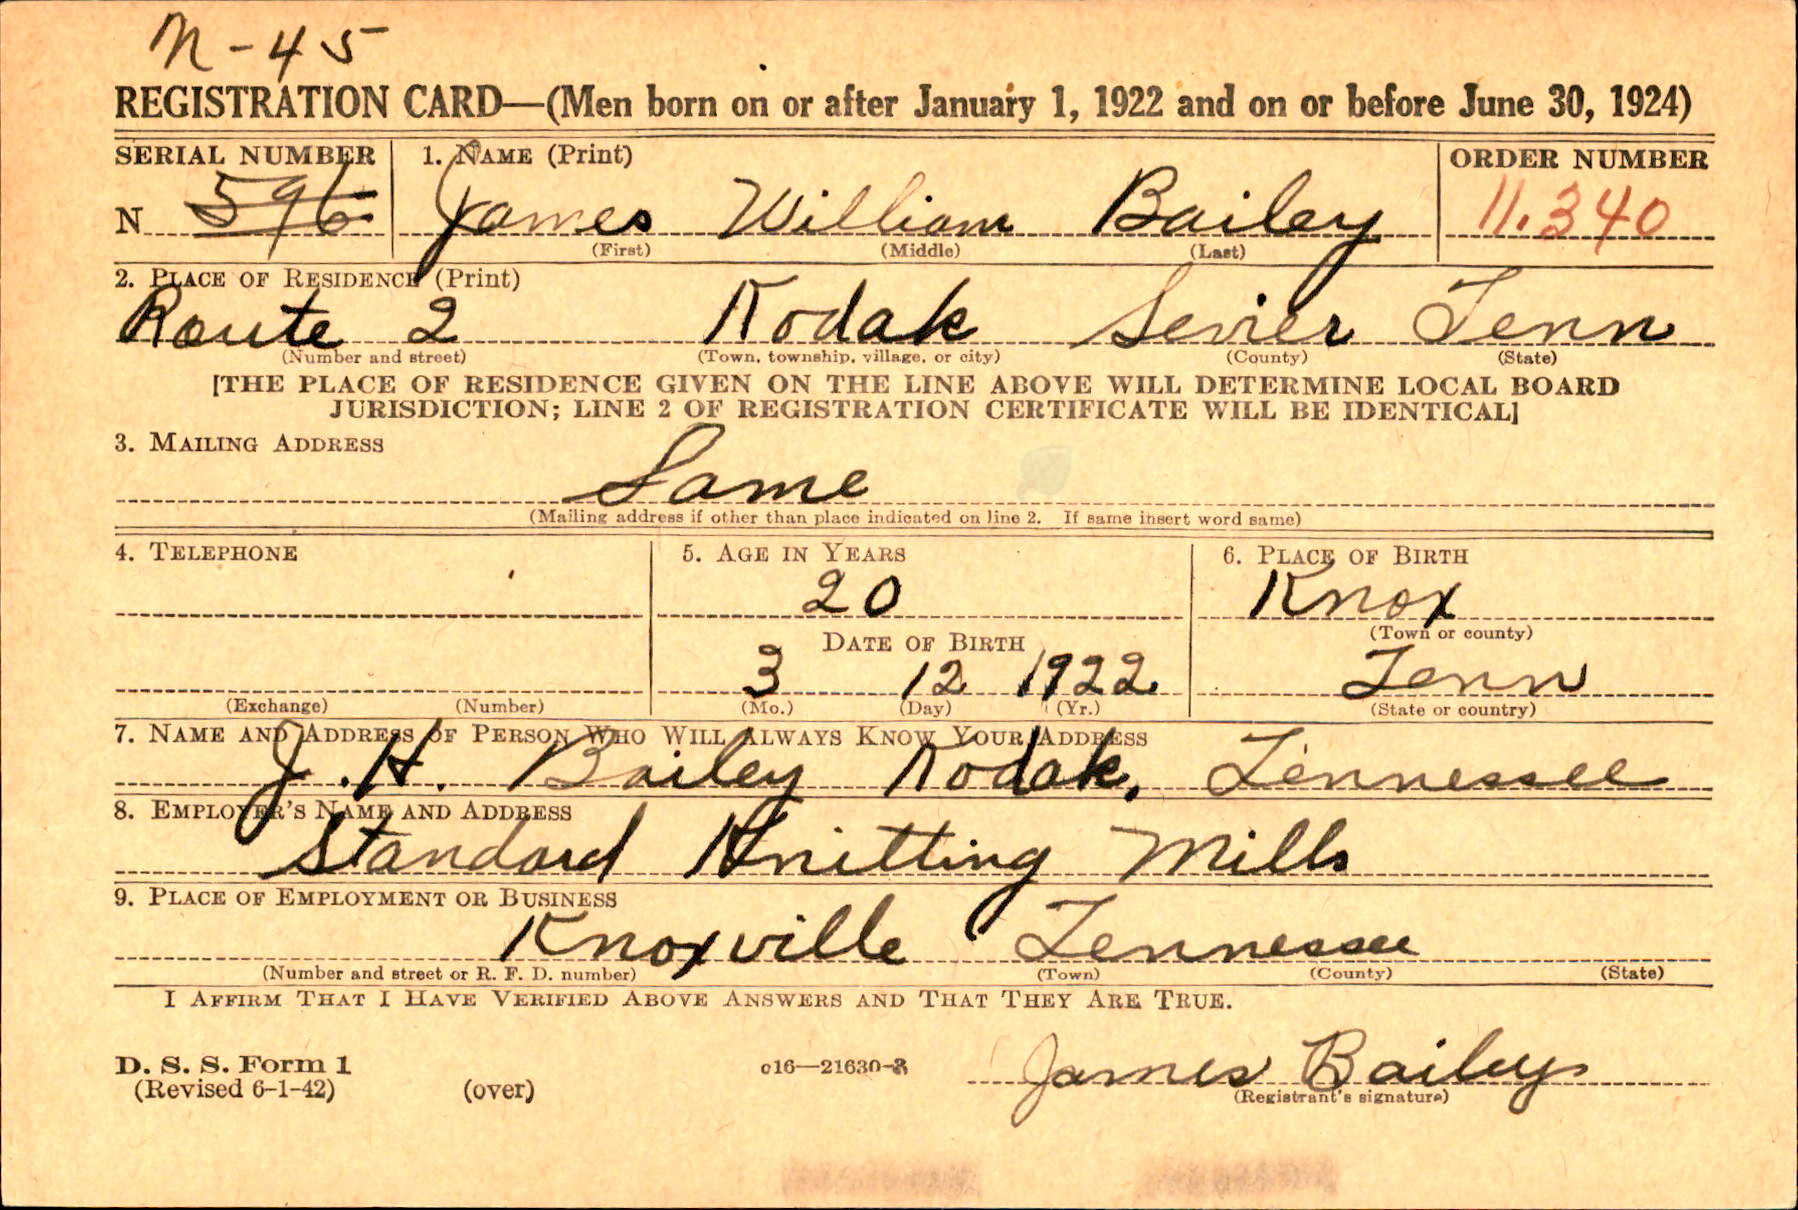 N-45
REGISTRATION CARD—(Men born on or after January 1, 1922 and on or before June 30, 1924)
SERIAL NUMBER 1. NAME (Print) ORDER NUMBER
N 596 James William Bailey 11.340
(First) (Middle) (Last)
2. PLACE OF RESIDENCE (Print)
Route 2 Kodak Sevier Tenn
(Number and street) (Town, township, village, or city) (County) (State)
[THE PLACE OF RESIDENCE GIVEN ON THE LINE ABOVE WILL DETERMINE LOCAL BOARD
JURISDICTION; LINE 2 OF REGISTRATION CERTIFICATE WILL BE IDENTICAL]
3. MAILING ADDRESS
Same
(Mailing address if other than place indicated on line 2. If same insert word same)
4. TELEPHONE 5. AGE IN YEARS 6. PLACE OF BIRTH
20 Knox
(Town or county)
DATE OF BIRTH
3 12 1922 Tenn
(Exchange) (Number) (Mo.) (Day) (Yr.) (State or country)
7. NAME AND ADDRESS OF PERSON WHO WILL ALWAYS KNOW YOUR ADDRESS
J. H. Bailey Kodak, Tennessee
8. EMPLOYER'S NAME AND ADDRESS
Standard Knitting Mills
9. PLACE OF EMPLOYMENT OR BUSINESS
Knoxville Tennessee
(Number and street or R. F. D. number) (Town) (County) (State)
I AFFIRM THAT I HAVE VERIFIED ABOVE ANSWERS AND THAT THEY ARE TRUE.
D. S. S. Form 1 c16—21630-3 James Bailey
(Revised 6-1-42) (over) (Registrant's signature)